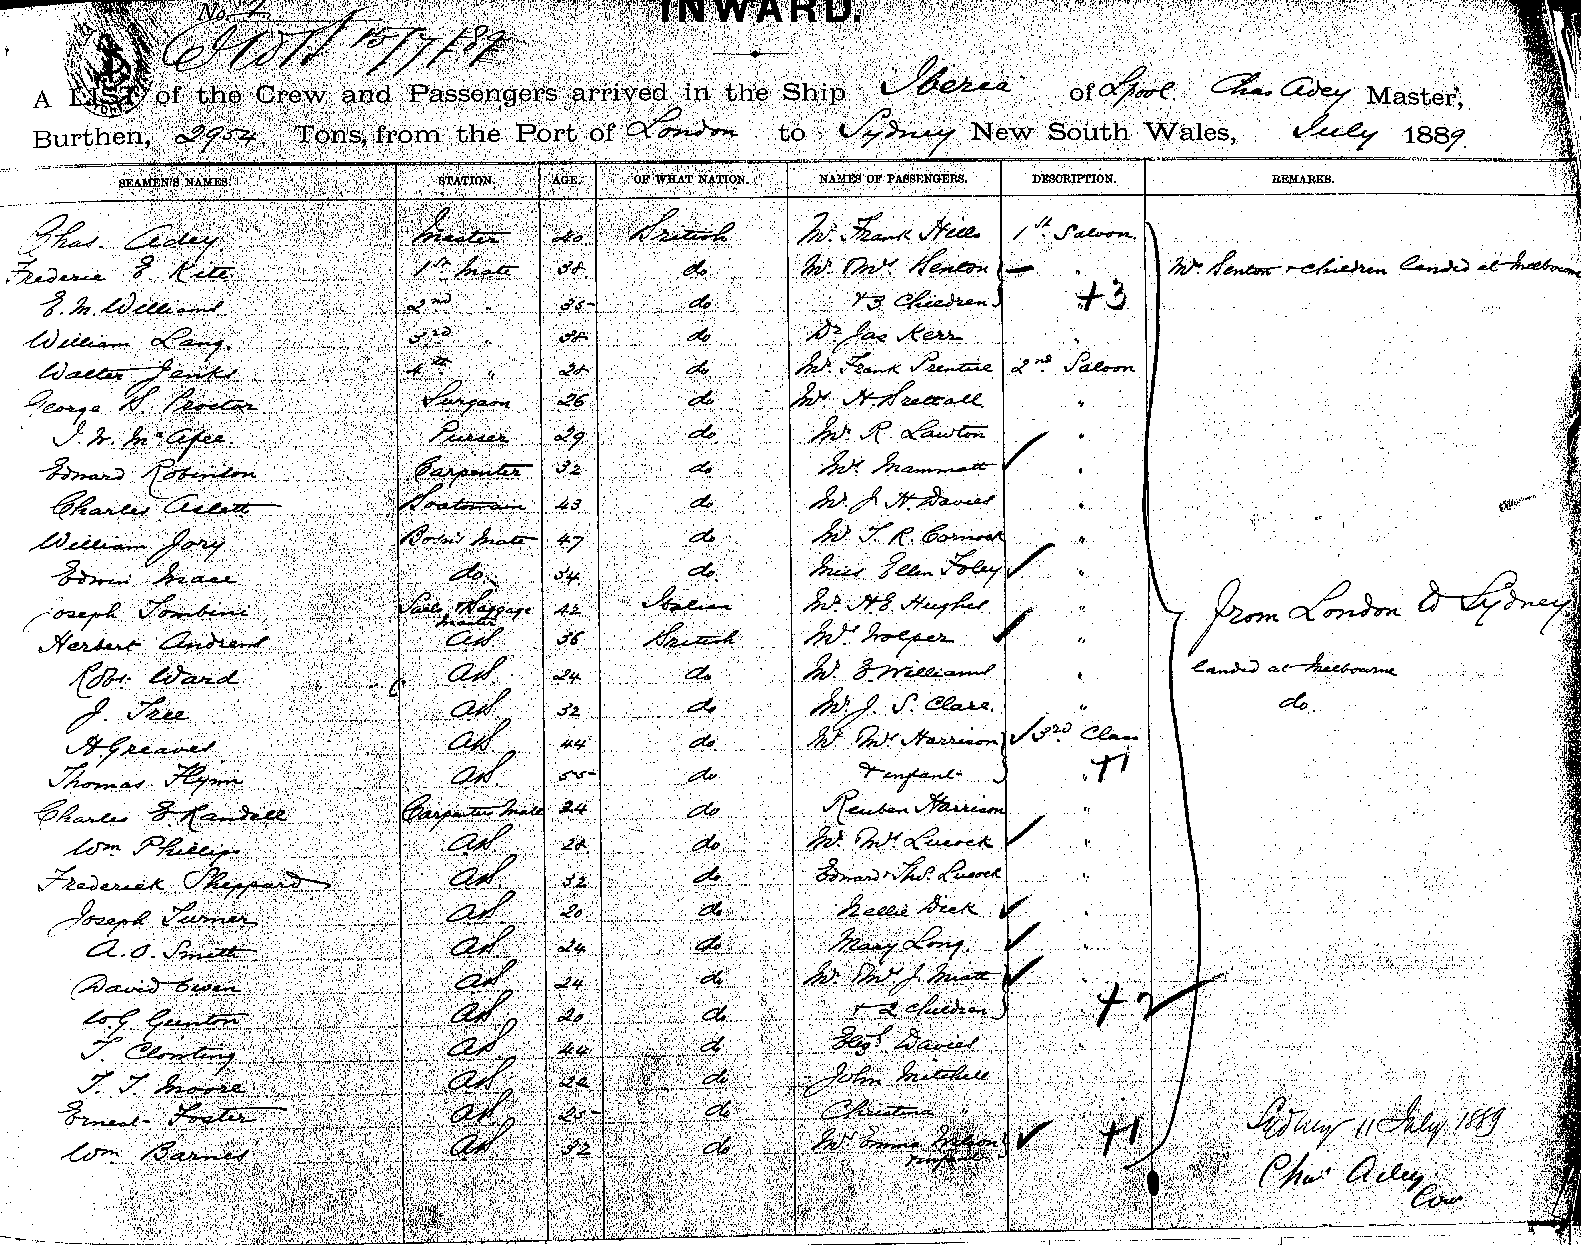 No. 1
INWARD.
15/7/89
A LIST of the Crew and Passengers arrived in the Ship Iberia of Lpool Chas Adey Master,
Burthen, 2954 Tons, from the Port of London to Sydney New South Wales, July 1889.
SEAMEN'S NAMES. STATION. AGE. OF WHAT NATION. NAMES OF PASSENGERS. DESCRIPTION. REMARKS.
Chas. Adey Master 40 British Mr. Frank Hills 1st Saloon
Frederic E Kite 1st Mate 38 do Mr. Mrs Benton " Mrs Benton + children landed at Melbourne
E. M. Williams 2nd " 35 do + 3 Children +3
William Lang. 3rd " 38 do Dr Jas Kerr "
Walter Jenks 4th " 28 do Mr. Frank Prentice 2nd Saloon
George S. Proctor Surgeon 26 do Mr. H "
J. W. McAfee Purser 29 do Mr. R Lawton "
Edward Robinson Carpenter 32 do Mrs. Mammatt "
Charles Aslett Boatswain 43 do Mr. J H Davies "
William Jory Bosn's Mate 47 do Mr. T. R. Cornock "
Edwin Mace do 34 do Miss Ellen Foley "
Joseph Tombini Baggage Master 42 Italian Mr. H E Hughes " from London to Sydney
Herbert Andrews AB 36 British Mrs Wolper "
Robt. Ward AB 24 do Mr. E Williams " landed at Melbourne
J. Tree AB 32 do Mr. J. S. Clare. " do.
H Greaves AB 44 do Mr Mrs Harrison 3rd Class
Thomas Flynn AB 55 do + infant " +1
Charles E Randell Carpenters Mate 24 do Reuben Harrison "
Wm Phillips AB 28 do Mr. Mrs Lucock "
Frederick Sheppard AB 32 do Edward Thos. Lucock "
Joseph Turner AB 20 do Nellie Dick "
A. O. Smith AB 24 do Mary Long. "
David Owen AB 24 do Mr. Mrs J. Miatt "
W G Gunton AB 20 do + 2 Children +2
T. Clouting AB 44 do Elizth Davies "
T. T. Moore AB 22 do John Mitchell
Ernest Foster AB 25 do Christina "
Wm Barnes AB 32 do Mrs Emma Wilson +1
infant
Sydney 11 July 1889
Chas Adey
Com